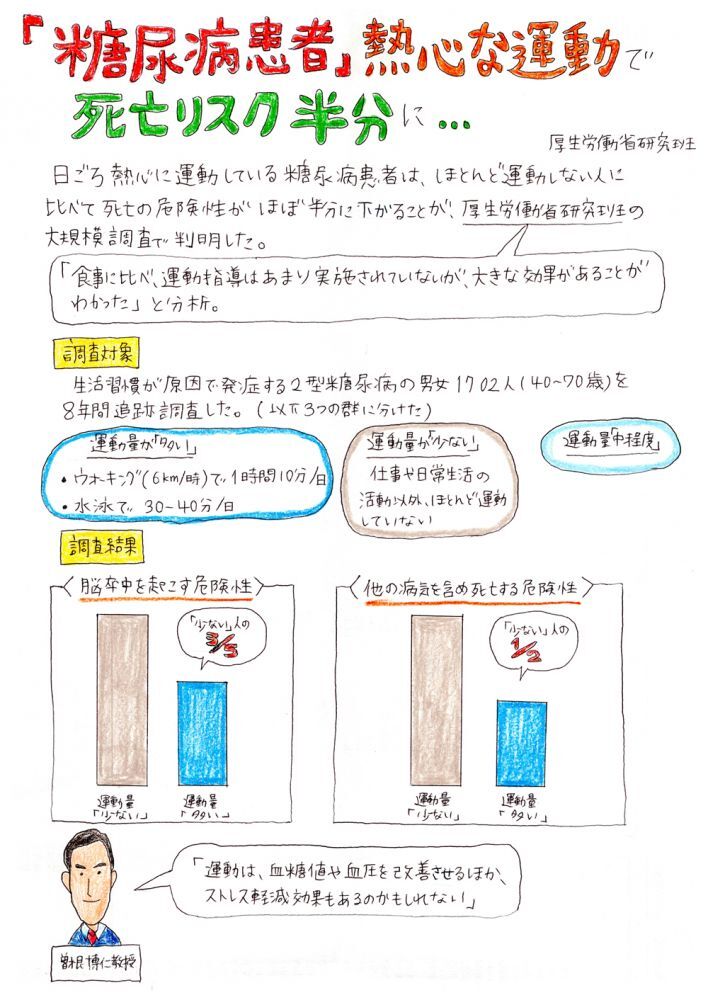 「糖尿病患者」熱心な運動で
死亡リスク半分に…
厚生労働省研究班
日ごろ熱心に運動している糖尿病患者は、ほとんど運動しない人に
比べて死亡の危険性がほぼ半分に下がることが、厚生労働省研究班の
大規模調査で判明した。
「食事に比べ、運動指導はあまり実施されていないが、大きな効果があることが
わかった」と分析。
調査対象
生活習慣が原因で発症する2型糖尿病の男女1702人(40~70歳)を
8年間追跡調査した。(以下3つの群に分けた)
運動量が「多い」
・ウオーキング(6km/時)で1時間10分/日
・水泳で 30~40分/日
運動量が「少ない」
仕事や日常生活の
活動以外、ほとんど運動
していない
運動量「中程度」
調査結果
〈脳卒中を起こす危険性〉
「少ない」人の
3/5
運動量
「少ない」
運動量
「多い」
〈他の病気を含め死亡する危険性〉
「少ない」人の
1/2
運動量
「少ない」
運動量
「多い」
「運動は、血糖値や血圧を改善させるほか、
ストレス軽減効果もあるのかもしれない」
曽根博仁教授